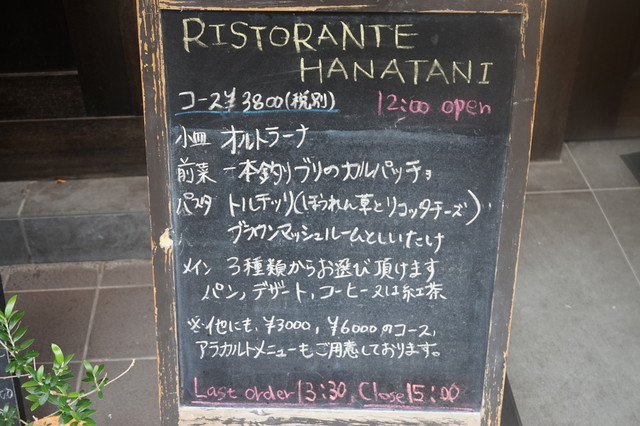 RISTORANTE
HANATANI
コース¥3800(税別) 12:00 open
小皿 オルトラーナ
前菜 一本釣りブリのカルパッチョ
パスタ トルテッリ(ほうれん草とリコッタチーズ)
ブラウンマッシュルームとしいたけ
メイン 3種類からお選び頂けます
パン、デザート、コーヒー又は紅茶
※他にも、¥3000、¥6000のコース、
アラカルトメニューもご用意しております。
Last order 13:30, Close 15:00